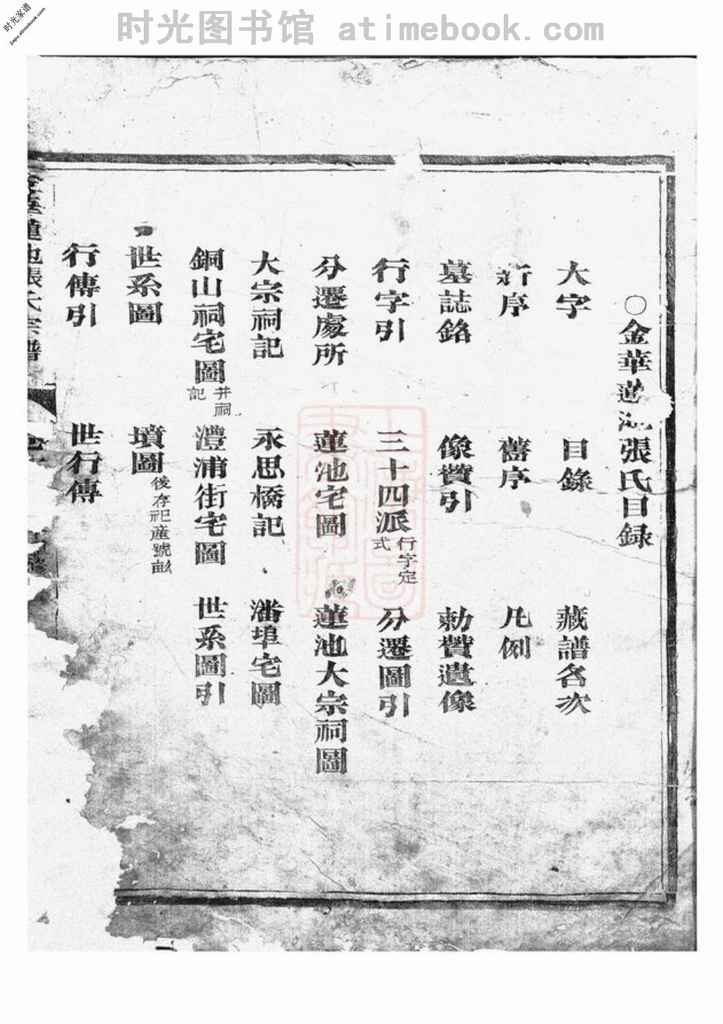 时光图书馆 atimebook.com
时光家谱
jiapu.atimebook.com
○金華蓮池張氏目録
大字 目錄 藏譜名次
新序 舊序 凡例
墓誌銘 像贊引 勅贊遺像
行字引 三十四派行字定式 分遷圖引
分遷處所 蓮池宅圖 蓮池大宗祠圖
大宗祠記 永思橋記 潘埠宅圖
銅山祠宅圖并祠記 澧浦街宅圖 世系圖引
世系圖 墳圖後存祀產號畝
行傳引 世行傳
金華蓮池張氏宗譜